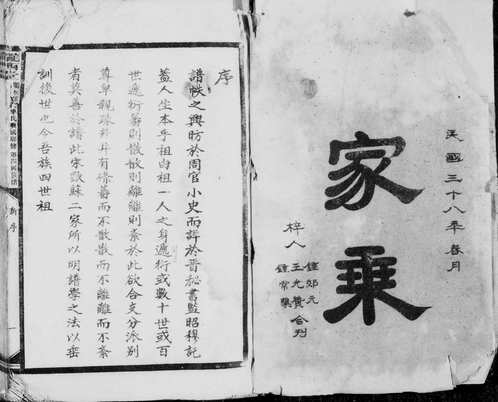 民國三十八年春月
家乘
梓人
鍾郊元
王九黃
鍾常集
合刊
序
譜帙之興昉於周官小史而詳於晉秘書監昭穆記
蓋人生本乎祖自祖一人之身遞衍或數十世或百
世遞衍蕃則散散則離離則紊於此欲合支分派別
尊卑親疎井井有條蕃而不散散而不離離而不紊
者莫善於譜此宋歐蘇二家所以明譜學之法以垂
訓後世也今吾族四世祖
新序
一